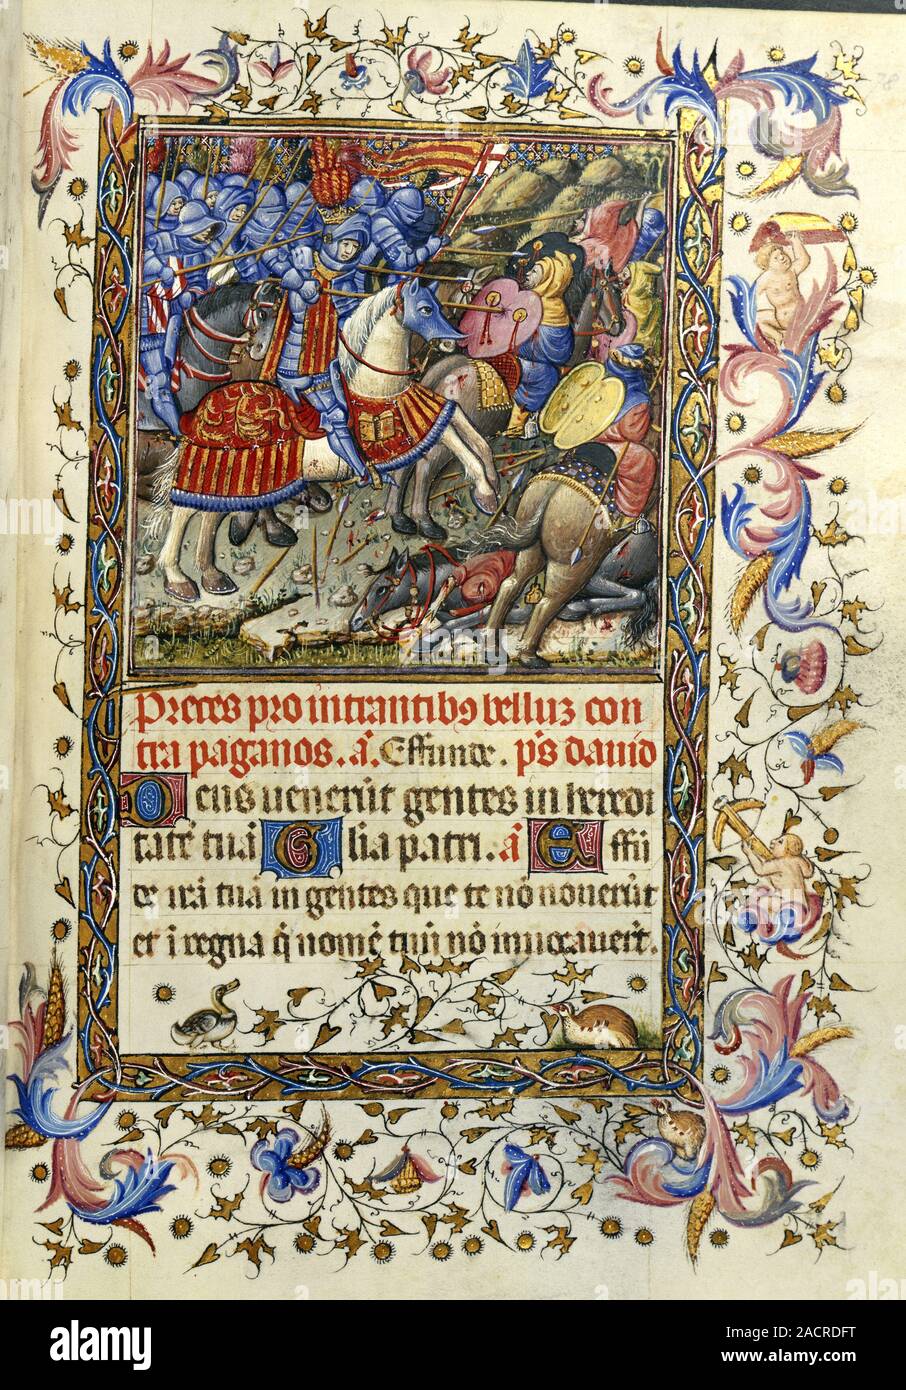 78
Preces pro intrantib⁹ belluʒ con
tra paganos. a͂. Effunde. p͂s dauid
Deus uenerūt gentes in heredi
tatē tuā Glia patri. a͂ Effū
de irā tuā in gentes que te nō nouerūt
et ī regna q̄ nomē tuū nō inuocauerūt.
alamy
Image ID: 2ACRDFT
www.alamy.com